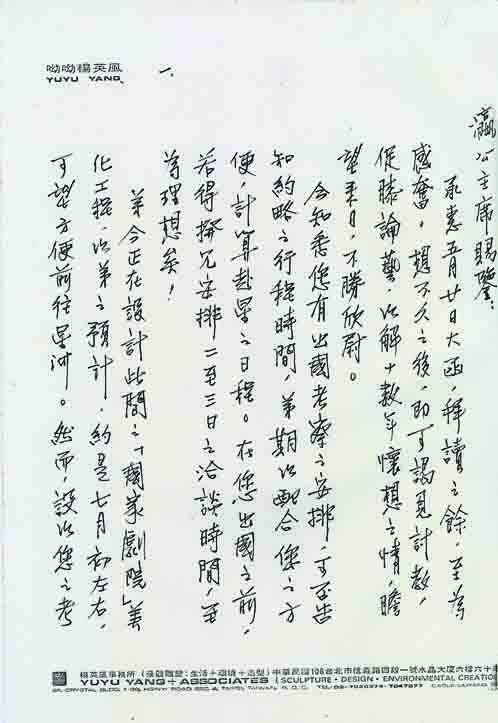 呦呦楊英風
YUYU YANG
一、
瀛公主席賜鑒：
承惠五月廿日大函，拜讀之餘，至為
感奮。想不久之後，即可謁見討教，
促膝論藝，以解十數年懷想之情，瞻
望來日，不勝欣慰。
今知悉您有出國考察之安排，可否告
知約略之行程時間，弟期以配合您之方
便，計算赴星之日程。在您出國之前，
若得撥冗安排二至三日之洽談時間，至
為理想矣！
弟今正在設計此間之「國家劇院」美
化工程，以弟之預計，約是七月初左右，
可望方便前往星洲。然而，設以您之考
楊英風事務所（景觀雕塑：生活＋環境＋造型）中華民國106台北市信義路四段一號水晶大廈六樓六十
YUYU YANG + ASSOCIATES (SCULPTURE・DESIGN・ENVIRONMENTAL CREATIO